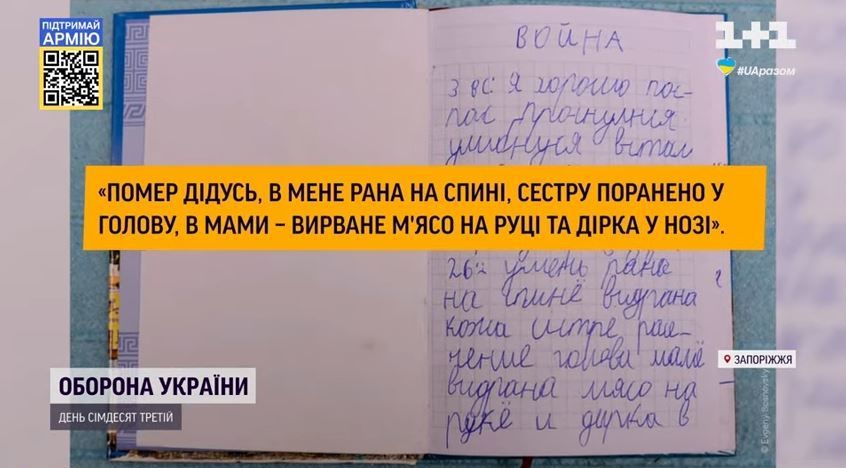 ПІДТРИМАЙ
АРМІЮ
1+1
#UAразом
ВОЙНА
Я хорошо пос-
пал проснулния
«ПОМЕР ДІДУСЬ, В МЕНЕ РАНА НА СПИНІ, СЕСТРУ ПОРАНЕНО У
ГОЛОВУ, В МАМИ – ВИРВАНЕ М'ЯСО НА РУЦІ ТА ДІРКА У НОЗІ».
рана
на спинё видрана
кожа систре
чение голова мамё
видрана мясо на
рукё и дирка в
ЗАПОРІЖЖЯ
ОБОРОНА УКРАЇНИ
ДЕНЬ СІМДЕСЯТ ТРЕТІЙ